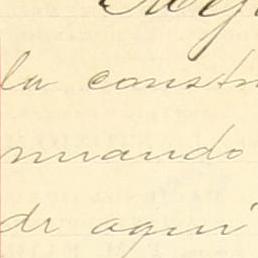 la constr
nuando
de aqui